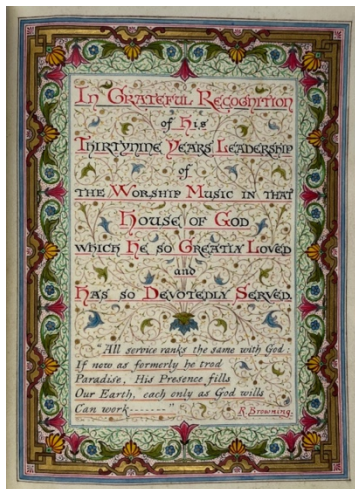 In Grateful Recognition
of His
Thirtynine Years Leadership
of
the Worship Music in that
House of God
which He so Greatly Loved
and
Has so Devotedly Served.
"All service ranks the same with God:
If now as formerly he trod
Paradise, His Presence fills
Our Earth, each only as God wills
Can work------"
R. Browning.